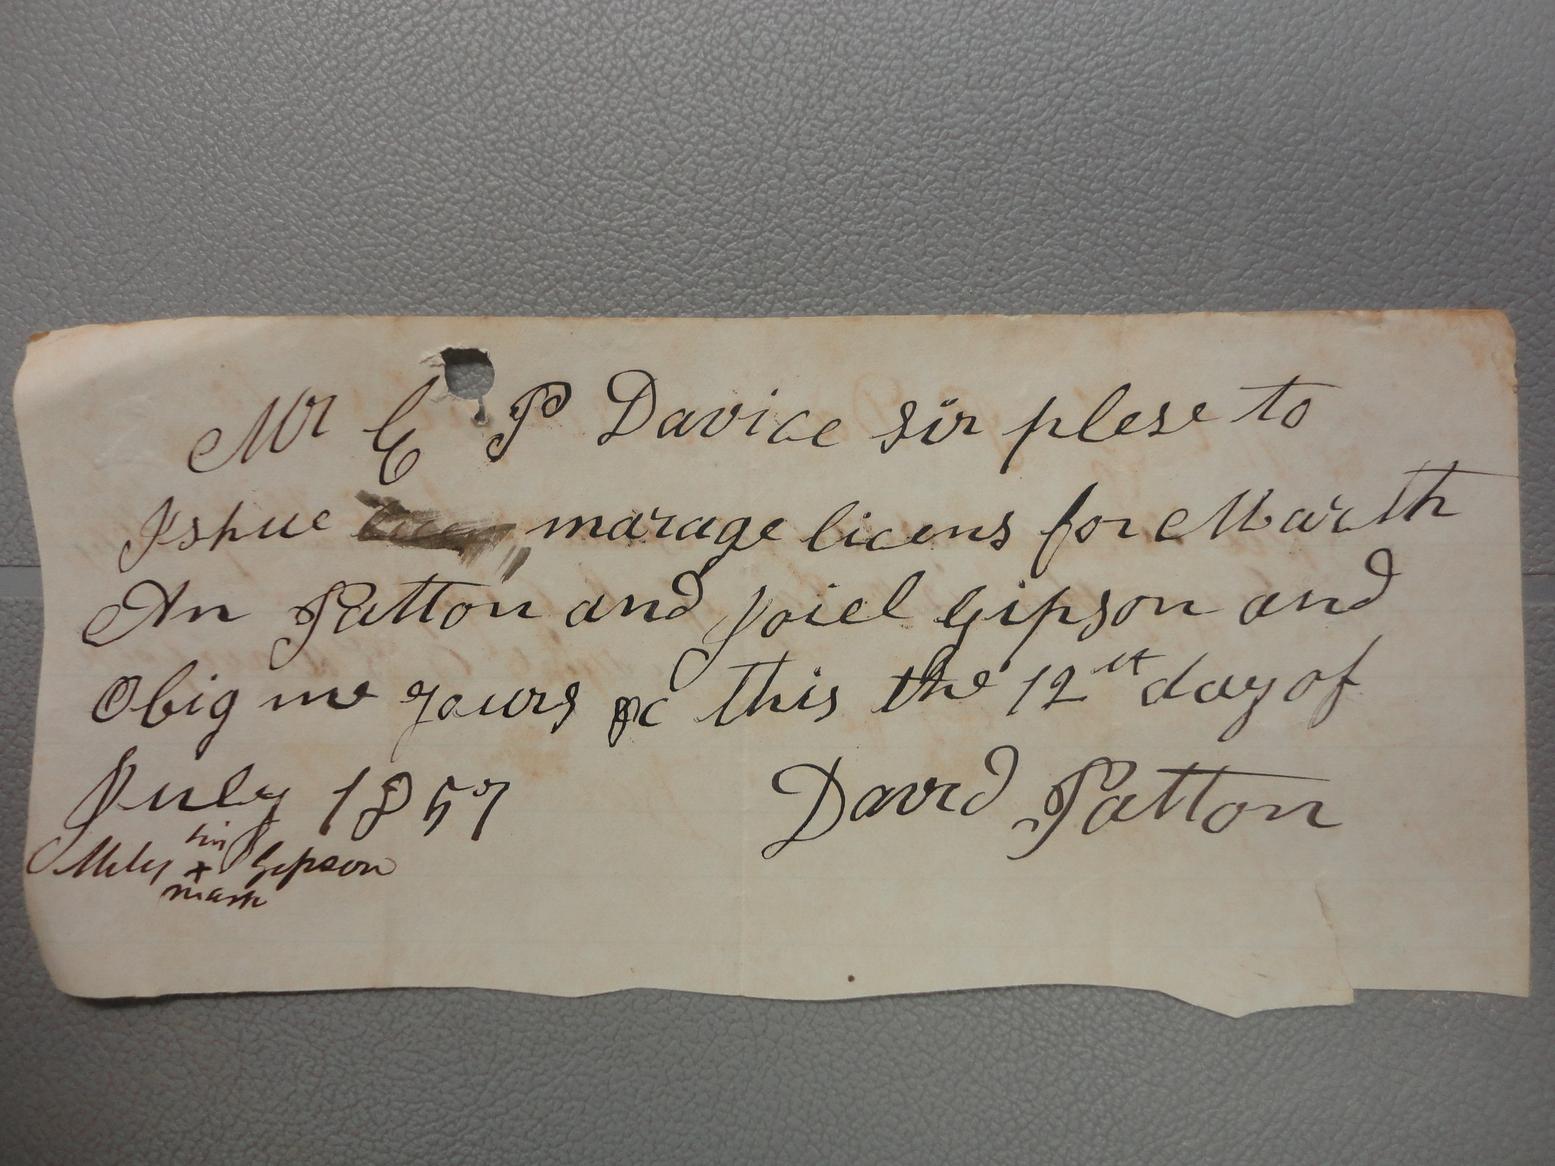 Mr C P Davice sir plese to
Ishue marage licens for Marth
An Patton and Joiel Gipson and
Obig me yours &c this the 12th day of
July 1857 David Patton
his
Miley + Gipson
mark